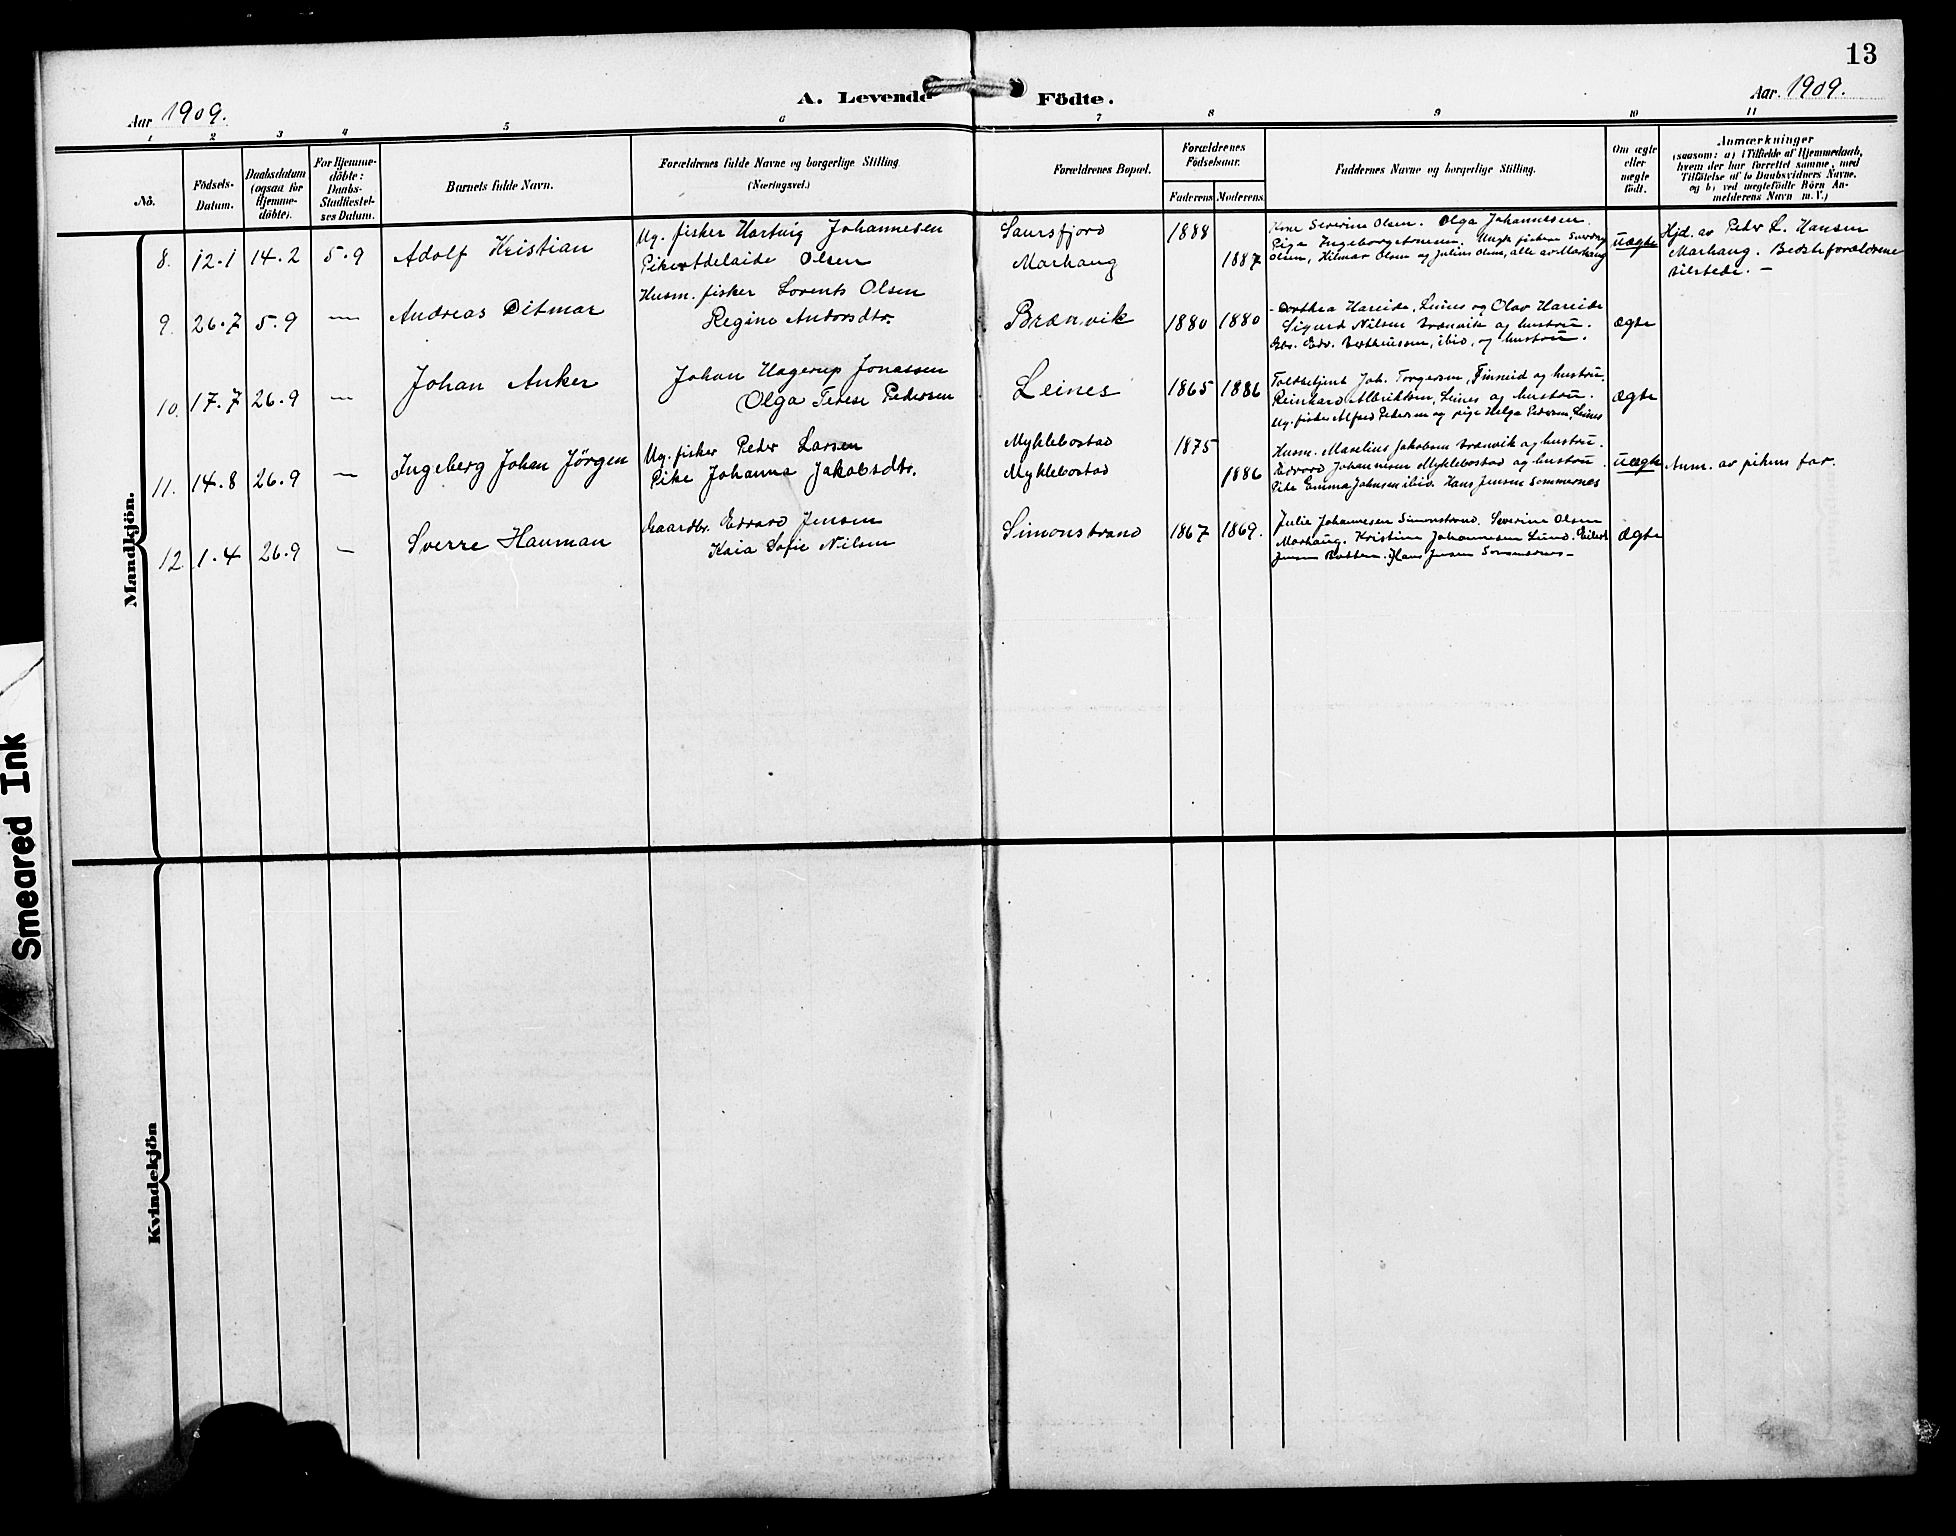 13
Aar 1909.
A. Levende Födte.
Aar. 1909.
1 2 3 4 5 6 7 8 9 10 11
No.
Födsels-
Datum.
Daabsdatum
(ogsaa for
Hjemme-
döbte).
For Hjemme-
döbte:
Daabs-
Stadfæstel-
ses Datum.
Barnets fulde Navn.
Forældrenes fulde Navne og borgerlige Stilling
(Næringsvei.)
Forældrenes Bopæl.
Forældrenes
Födselsaar.
Faderens Moderens.
Faddernes Navne og borgerlige Stilling.
Om ægte
eller
uægte
födt.
Anmærkninger
(saasom: a) i Tilfælde af Hjemmedaab,
hvem der har forrettet samme, med
Tilföielse af to Daabsvidners Navne,
og b) ved uægtefödte Börn An-
melderens Navn m. V.)
Mandkjön.
8. 12.1 14.2 5.9 Adolf Kristian
Ug. fisker Hartvig Johannesen
Pike Adelaide Olsen
Saursfjord
Marhaug
1888
1887
Kone Severine Olsen. Olga Johannesen
Pige Ingeborg
Olsen, Hilmar Olsen og Julius Olsen, alle av Marhaug
uægte
Hjd. av Peder L. Hansen
Marhaug. Bedsteforældrene
tilstede. —
9. 26.7 5.9 — Andreas Ditmar
Husm. fisker Lorents Olsen
Regine Andorsdtr.
Brænvik
1880 1880
Dorthea Hareide, Leines og Olav Hareide
Sigurd Nilsen Brænvik og hustru.
Edv. Bertheussen, ibid, og hustru.
ægte
10. 17.7 26.9 — Johan Anker
Johan Hagerup Jonassen
Olga Terese Pedersen
Leines
1865 1886
Joh. Torgersen, Finneid og hustru.
Reinhard Albriktsen, Leines og hustru.
Ug. fisker Alfred Pedersen og pige Helga Pedersen, Leines
ægte
11. 14.8 26.9 — Ingeberg Johan Jörgen
Ug. fisker Peder Larsen
Pike Johanna Jakobsdtr.
Myklebostad
Myklebostad
1875
1886
Husm. Marelius Jakobsen Brænvik og hustru.
Edvard Johannesen Myklebostad og hustru.
Pike Emma Johnsen ibid. Hans Jensen Sommernes
uægte
Anm. av pikens far.
12. 1.4 26.9 — Sverre Hauman
Gaardbr. Edvard Jensen
Kaia Sofie Nilsen
Simonstrand
1867 1869.
Julie Johannesen Simonstrand. Severine Olsen
Marhaug. Kristine Johannesen Lund. Eilert
Jensen Botten. Hans Jensen Sommernes —
ægte
Kvindekjön
Smeared Ink